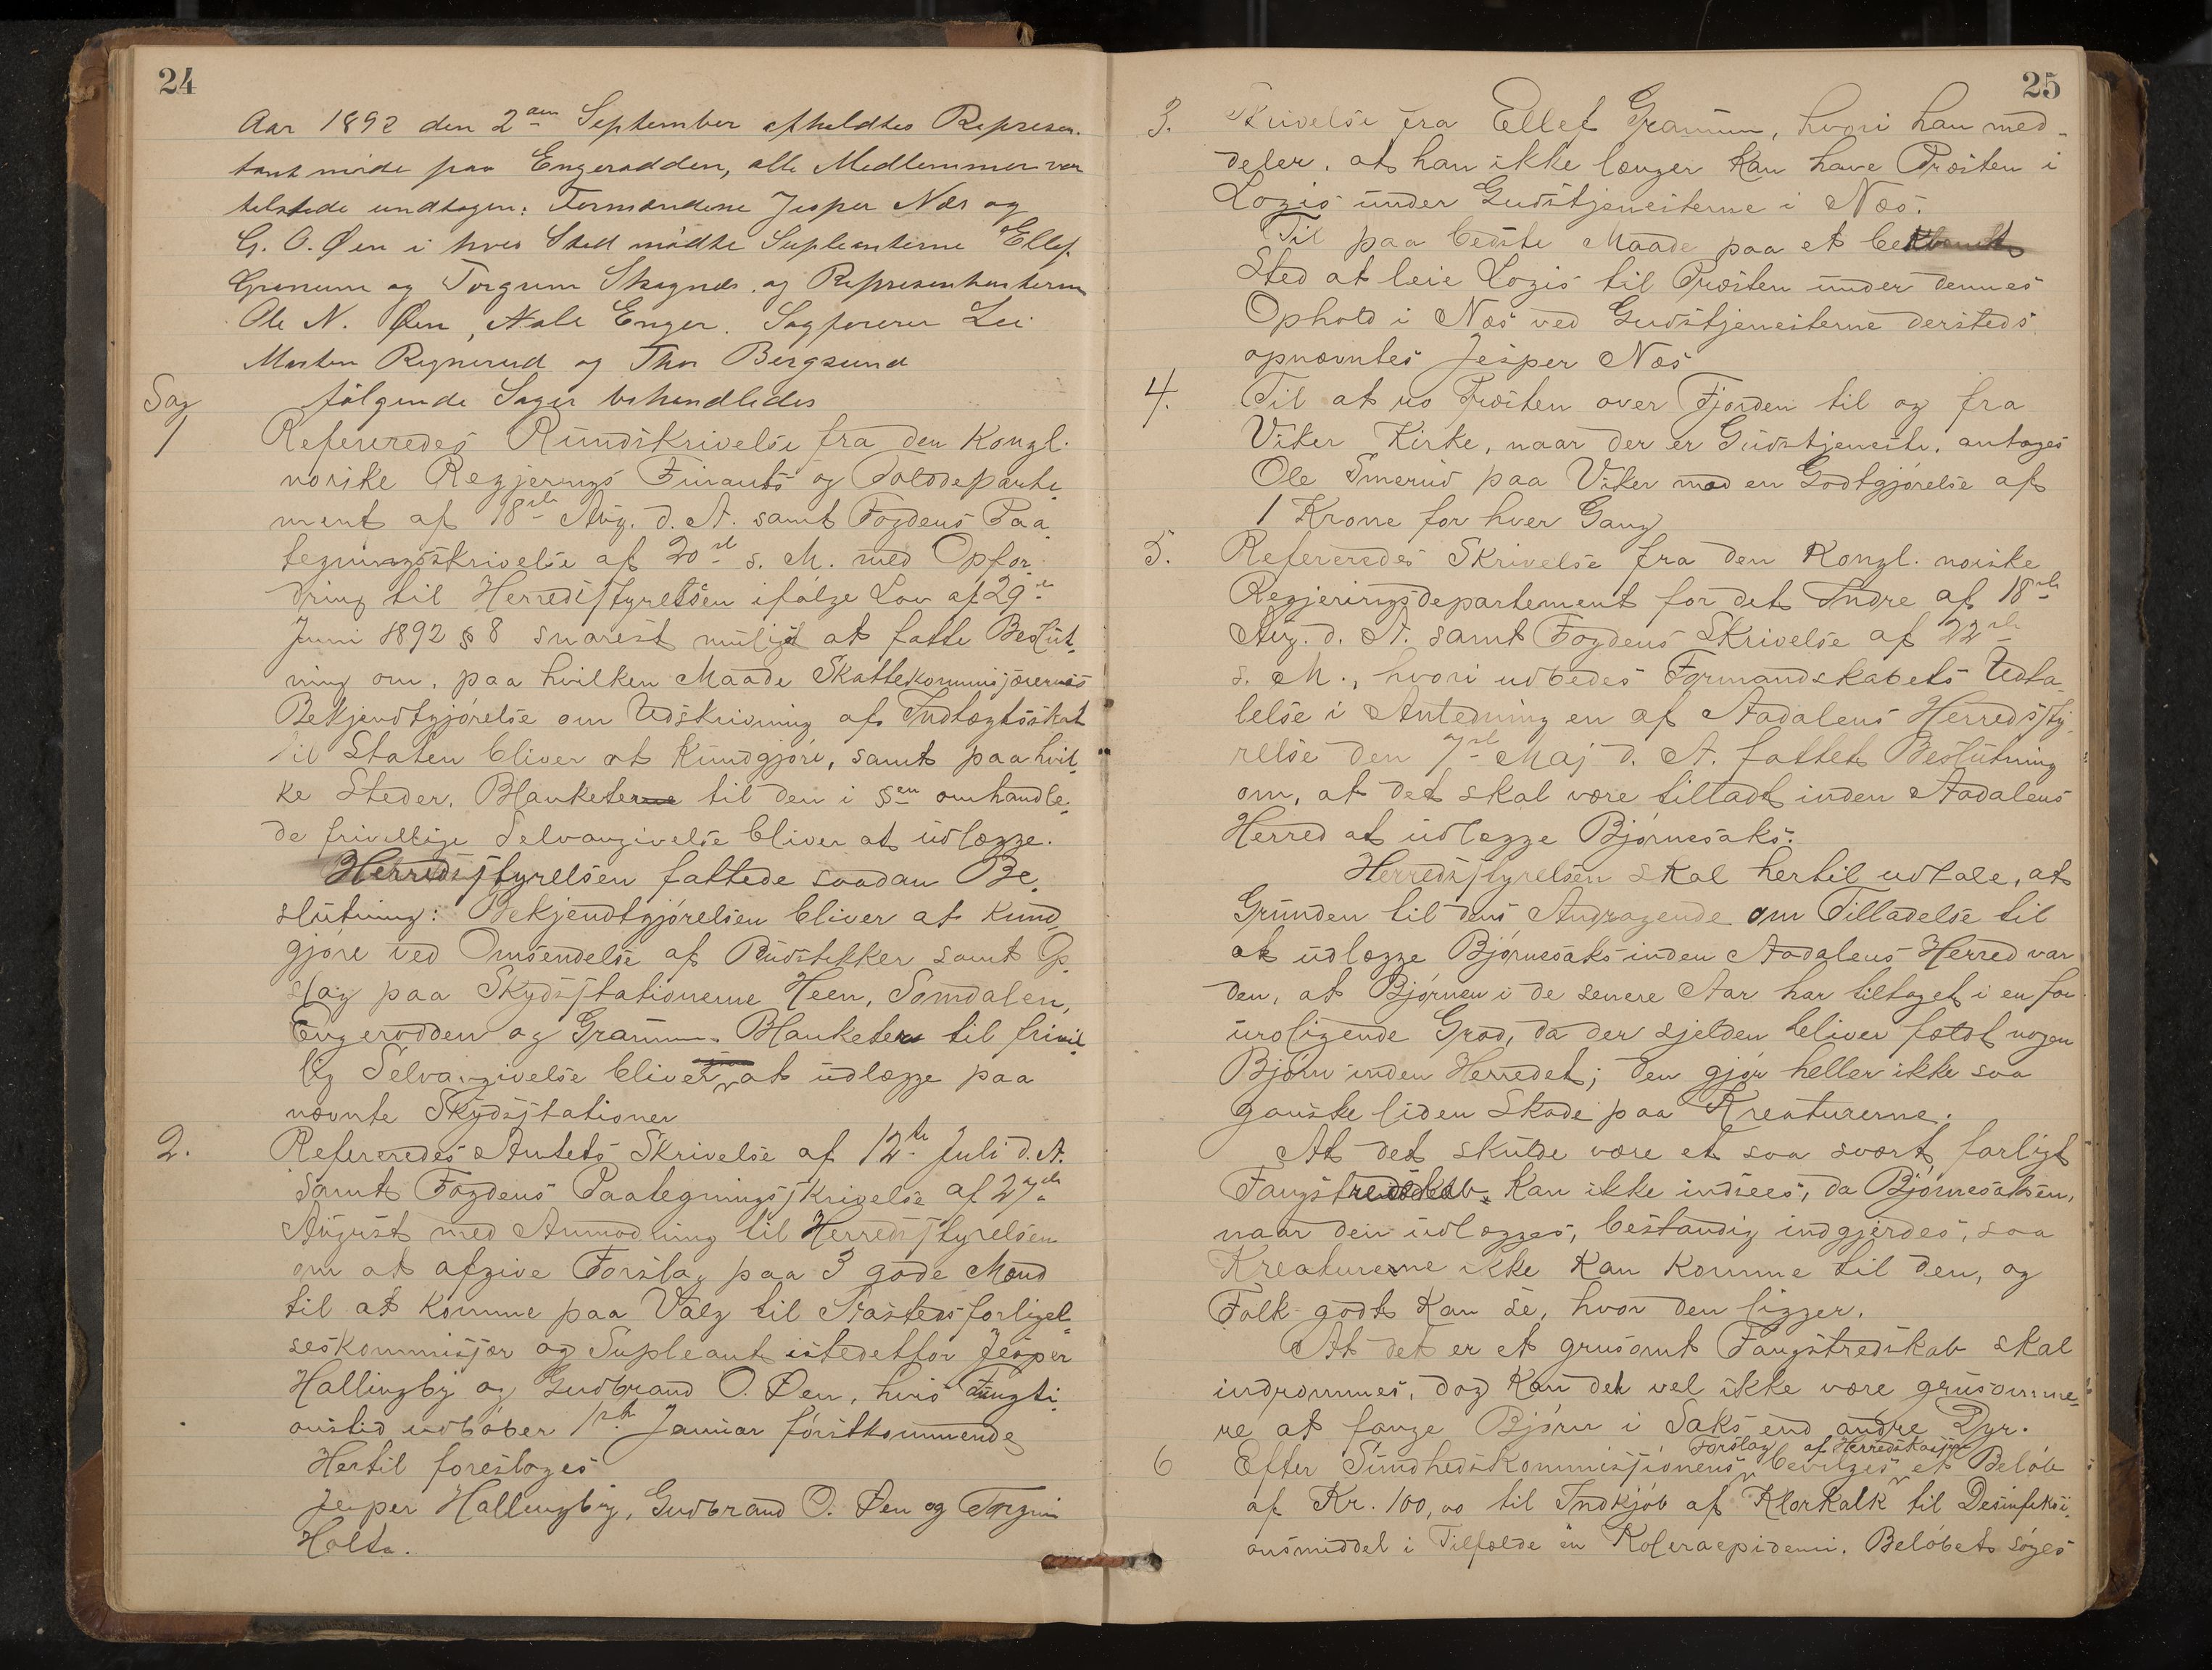 24
Aar 1892 den 2den September afholdtes Represen-
tantmøde paa Engerodden, alle Medlemmer var
tilstede undtagen: Formændene Jesper Næs og
G. O. Øen i hvis Sted mødte Supleanterne Ellef
Granum og Torgrim Skagnæs, og Representanterne
Ole N. Øen, Enger. Sagfører Lie
Morten Rognerud og Thor Bergsund
følgende Sager behandledes
Sag
1 Refereredes Rundskrivelse fra den Kongl.
norske Regjerings Finants og Tolddeparte-
ment af 18de Aug. d. A. samt Fogdens Paa-
tegningsskrivelse af 20de s. M. med Opfor-
dring til Herredsstyrelsen ifølge Lov af 29de
Juni 1892 § 8 snarest muligt at fatte Beslut-
ning om, paa hvilken Maade Skattekommisjærernes
Bekjendtgjørelse om Udskrivning af Indtægtsskat
til Staten bliver at kundgjøre, samt paa hvil-
ke Steder, Blanketerne til den i § omhandle-
de frivillige Selvangivelse bliver at udlægge.
Herredsstyrelsen fattede saadan Be-
slutning: Bekjendtgjørelsen bliver at kund-
gjøre ved Omsendelse af Budstikker samt Op-
slag paa Skydsstationerne Heen, Somdalen,
Engerodden og Granum. Blanketer til frivil-
lig Selvangivelse bliver at udlægge paa
nævnte Skydsstationer
2. Refereredes Amtets Skrivelse af 12te Juli d. A.
samt Fogdens Paategningsskrivelse af 27de
August med Anmodning til Herredsstyrelsen
om at afgive Forslag paa 3 gode Mænd
til at komme paa Valg til Aastedsforligel-
seskommisjær og Supleant istedetfor Jesper
Hallingby og Gudbrand O. Øen, hvis Fungti-
onstid udløber 1ste Januar førstkommende
Hertil foresloges
Jesper Hallingby, Gudbrand O. Øen og Torgrim
Holte.
25
3. Skrivelse fra Ellef Granum, hvori han med-
deler, at han ikke længer kan have Præsten i
Logis under Gudstjenesterne i Næs.
Til paa bedste Maade paa et bekvemt
Sted at leie Logis til Præsten under dennes
Ophold i Næs ved Gudstjenesterne dersteds
opnævntes Jesper Næs
4. Til at ro Præsten over Fjorden til og fra
Viker Kirke, naar der er Gudstjeneste, antages
Ole Smerud paa Viker mod en Godtgjørelse af
1 Krone for hver Gang
5. Refereredes Skrivelse fra den Kongl. norske
Regjeringsdepartement for det Indre af 18de
Aug. d. A. samt Fogdens Skrivelse af 22de
s. M., hvori udbedes Formandskabets Udta-
lelse i Anledning en af Aadalens Herredssty-
relse den 7de Maj d. A. fattet Beslutning
om, at det skal være tilladt inden Aadalens
Herred at udlægge Bjørnesaks.
Herredsstyrelsen skal hertil udtale, at
Grunden til dens Andragende om Tilladelse til
at udlægge Bjørnesaks inden Aadalens Herred var
den, at Bjørnen i de senere Aar har tiltaget i en for-
uroligende Grad, da der sjelden bliver fældt nogen
Bjørn inden Herredet; den gjør heller ikke saa
ganske liden Skade paa Kreaturerne.
At det skulde være et saa svært farligt
Fangstredskab, kan ikke indsees, da Bjørnesaksen,
naar den udlægges, bestandig indgjerdes, saa
Kreaturerne ikke kan komme til den, og
Folk godt kan se, hvor den ligger.
At det er et grusomt Fangstredskab skal
indrømmes, dog kan det vel ikke være grusomme-
re at fange Bjørn i Saks end andre Dyr.
6 Efter Sundhedskommisjionens Forslag bevilges af Herredskassen et Beløb
af Kr. 100,00 til Indkjøb af Klorkalk til Desinfeksi-
onsmiddel i Tilfælde en Koleraepidemi. Beløbet søges